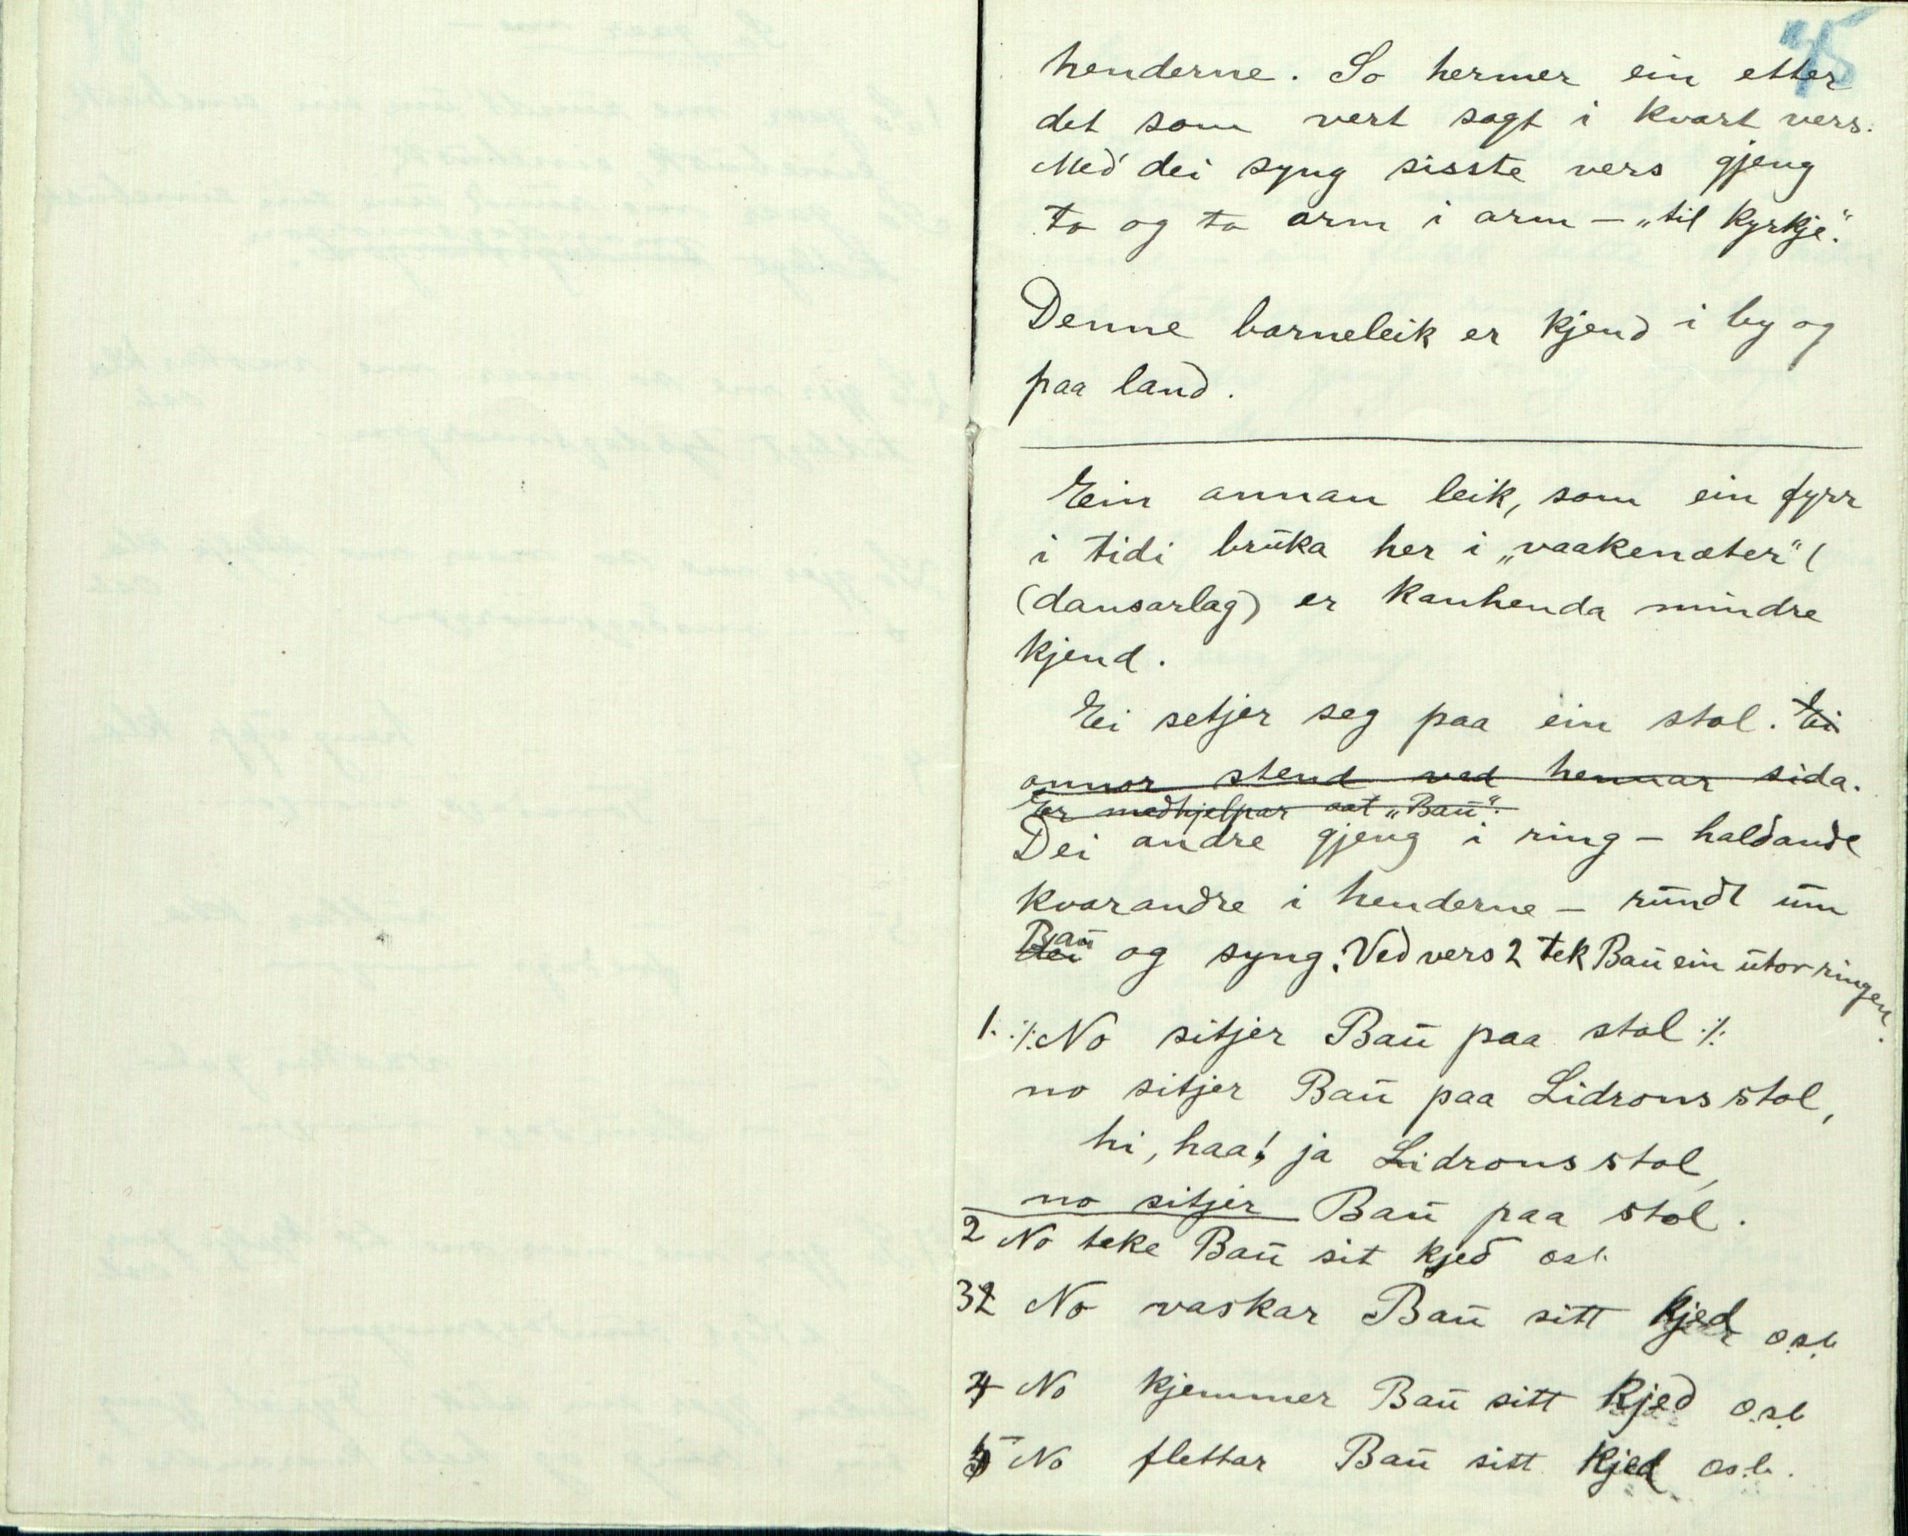 45
henderne. So hermer ein etter
det som vert sagt i kvart vers.
Med dei syng sisste vers gjeng
to og to arm i arm – „til kyrkje“.
Denne barneleik er kjend i by og
paa land.
Ein annan leik, som ein fyrr
i tidi bruka her i „vaakenæter“ (
(dansarlag) er kanhenda mindre
kjend.
Ei setjer seg paa ein stol. Ei
annor stend ved hennar sida.
Er medhjelpar aat „Bau“.
Dei andre gjeng i ring – haldande
kvarandre i henderne – rundt um
Bau og syng. Ved vers 2 tek Bau ein utor ringen.
1. ⁒ No sitjer Bau paa stol ⁒
no sitjer Bau paa Lidronsstol,
hi, haa! ja Lidronsstol,
no sitjer Bau paa stol.
2 No teke Bau sit kjed osb.
32 No vaskar Bau sitt kjed osb.
4 No kjemmer Bau sitt kjed osb
5 No flettar Bau sitt kjed osb.